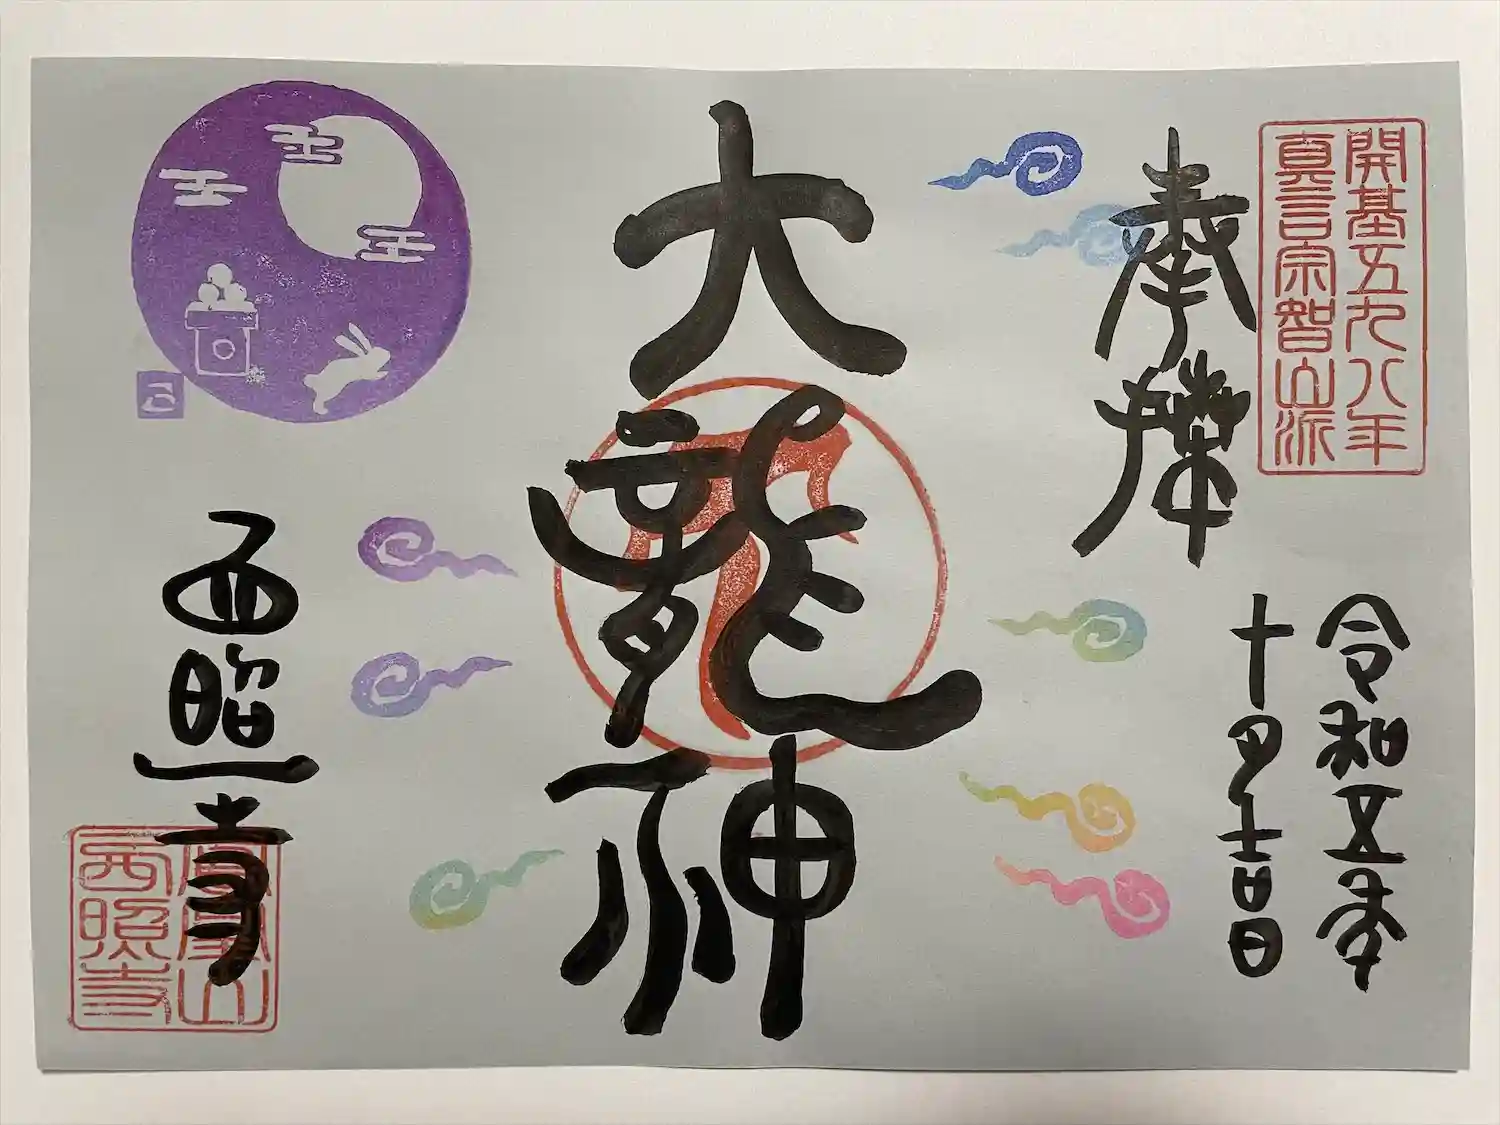 開基五九八年
真言宗智山派
奉拝
令和五年
十月吉日
大龍神
西照寺
鳳凰山
西照寺